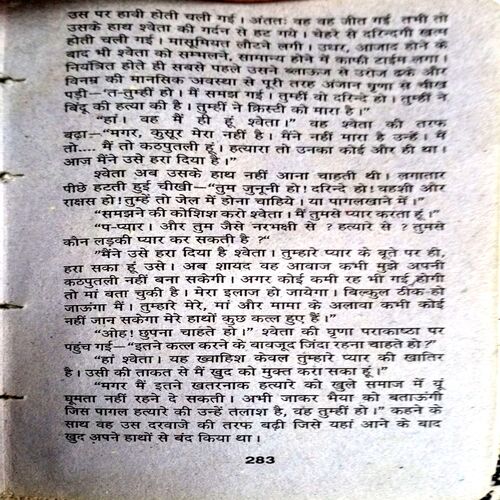 उस पर हावी होती चली गई। अंततः वह वह जीत गई तभी तो
उसके हाथ श्वेता की गर्दन से हट गये। चेहरे से दरिन्दगी खत्म
होती चली गई। मासूमियत लौटने लगी। उधर, आजाद होने के
बाद भी श्वेता को सम्भलने, सामान्य होने में काफी टाईम लगा।
नियंत्रित होते ही सबसे पहले उसने ब्लाऊज से उरोज ढके और
विनम्र की मानसिक अवस्था से पूरी तरह अंजान घृणा से चीख
पड़ी—“त-तुम्हीं हो। मैं समझ गई। तुम्हीं वो दरिन्दे हो। तुम्हीं ने
बिंदू की हत्या की है। तुम्हीं ने क्रिस्टी को मारा है।”
“हां। वह मैं ही हूं श्वेता।” वह श्वेता की तरफ
बढ़ा—“मगर, कुसूर मेरा नहीं है। मैंने नहीं मारा है उन्हें। मैं
तो.... मैं तो कठपुतली हूं। हत्यारा तो उनका कोई और ही था।
आज मैंने उसे हरा दिया है।”
श्वेता अब उसके हाथ नहीं आना चाहती थी। लगातार
पीछे हटती हुई चीखी—“तुम जुनूनी हो! दरिन्दे हो! वहशी और
राक्षस हो! तुम्हें तो जेल में होना चाहिये। या पागलखाने में।”
“समझने की कोशिश करो श्वेता। मैं तुमसे प्यार करता हूं।”
“प-प्यार। और तुम जैसे नरभक्षी से ? हत्यारे से ? तुमसे
कौन लड़की प्यार कर सकती है ?”
“मैंने उसे हरा दिया है श्वेता। तुम्हारे प्यार के बूते पर ही,
हरा सका हूं उसे। अब शायद वह आवाज कभी मुझे अपनी
कठपुतली नहीं बना सकेगी। अगर कोई कमी रह भी गई होगी
तो मां बता चुकी है। मेरा इलाज हो जायेगा। बिल्कुल ठीक हो
जाऊंगा मैं। तुम्हारे मेरे, मां और मामा के अलावा कभी कोई
नहीं जान सकेगा मेरे हाथों कुछ कत्ल हुए हैं।”
“ओह! छुपना चाहते हो।” श्वेता की घृणा पराकाष्ठा पर
पहुंच गई—“इतने कत्ल करने के बावजूद जिंदा रहना चाहते हो?”
“हां श्वेता। यह ख्वाहिश केवल तुम्हारे प्यार की खातिर
है। उसी की ताकत से मैं खुद को मुक्त करा सका हूं।”
“मगर मैं इतने खतरनाक हत्यारे को खुले समाज में यूं
घूमता नहीं रहने दे सकती। अभी जाकर भैया को बताऊंगी
जिस पागल हत्यारे की उन्हें तलाश है, वह तुम्हीं हो।” कहने के
साथ वह उस दरवाजे की तरफ बढ़ी जिसे यहां आने के बाद
खुद अपने हाथों से बंद किया था।
283